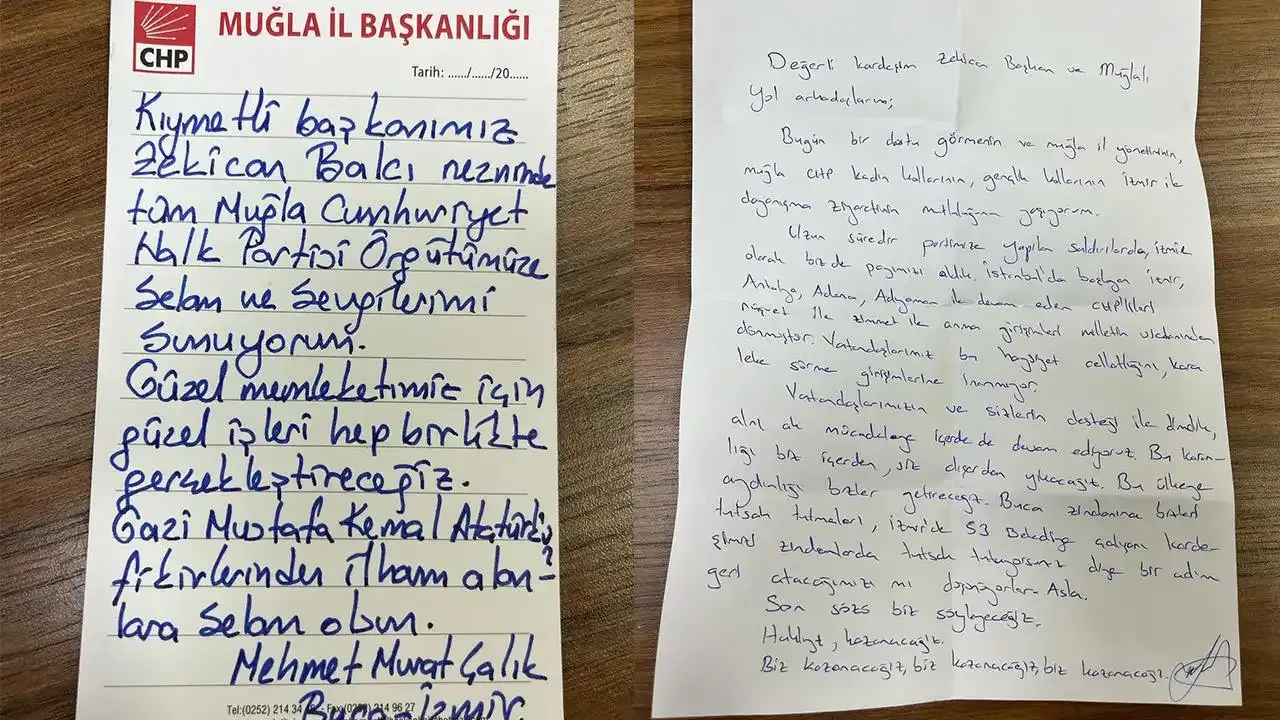 CHP
MUĞLA İL BAŞKANLIĞI
Tarih: ....../....../20......
Kıymetli başkanımız
Zekican Balcı nezninde
tüm Muğla Cumhuriyet
Halk Partisi Örgütümüze
Selam ve Sevgilerimi
Sunuyorum.
Güzel memleketimiz için
güzel işleri hep birlikte
gerçekleştireceğiz.
Gazi Mustafa Kemal Atatürk'ün
fikirlerinden ilham alan-
lara Selam olsun.
Mehmet Murat Çalık
Buca İzmir.
Tel:(0252) 214 34
214 96 27
Değerli kardeşim Zekican Başkan ve Muğlalı
Yol arkadaşlarım;
Bugün bir dostu görmenin ve muğla il yönetiminin,
muğla CHP kadın kollarının, gençlik kollarının İzmir ile
dayanışma ziyaretinin mutluluğunu yaşıyorum.
Uzun süredir partimize yapılan saldırılarda, izmir
olarak bizde payımızı aldık. İstanbul'da başlayan izmir,
Antalya, Adana, Adıyaman ile devam eden CHP'lileri
rüşvet ile zimmet ile anma girişimleri milletin vicdanından
dönmüştür. Vatandaşlarımız bu haysiyet cellatlığını, kara
leke sürme girişimlerine inanmıyor.
Vatandaşlarımızın ve sizlerin desteği ile dimdik,
alnı ak mücadeleye içerde de devam ediyoruz. Bu karan-
lığı biz içerden, siz dışardan yıkacağız. Bu ülkeye
aydınlığı bizler getireceğiz. Buca zindanına bizleri
tutsak etmeleri, izmir'de 53 Belediye çalışanı karde-
şimizi zindanlarda tutsak tutuyorsunuz diye bir adım
geri atacağımızı mı düşünüyorlar. Asla.
Son sözü biz söyleyeceğiz.
Haklıyız, kazanacağız.
Biz kazanacağız, biz kazanacağız, biz kazanacağız.